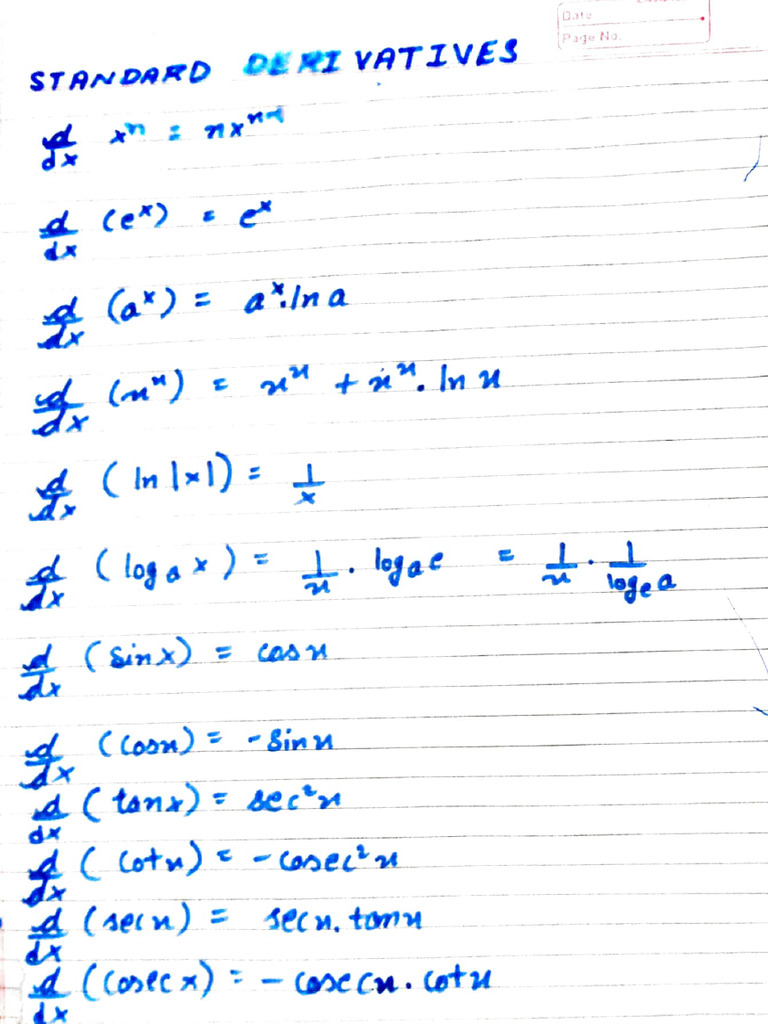 Date
Page No.
STANDARD DERIVATIVES
d/dx xⁿ = nxⁿ⁻¹
d/dx (eˣ) = eˣ
d/dx (aˣ) = aˣ.ln a
d/dx (xˣ) = xˣ + xˣ. ln x
d/dx (ln |x|) = 1/x
d/dx (logₐ x) = 1/x . logₐ e = 1/x . 1/logₑ a
d/dx (sin x) = cos x
d/dx (cos x) = - sin x
d/dx (tan x) = sec² x
d/dx (cot x) = - cosec² x
d/dx (sec x) = sec x. tan x
d/dx (cosec x) = - cosec x. cot x